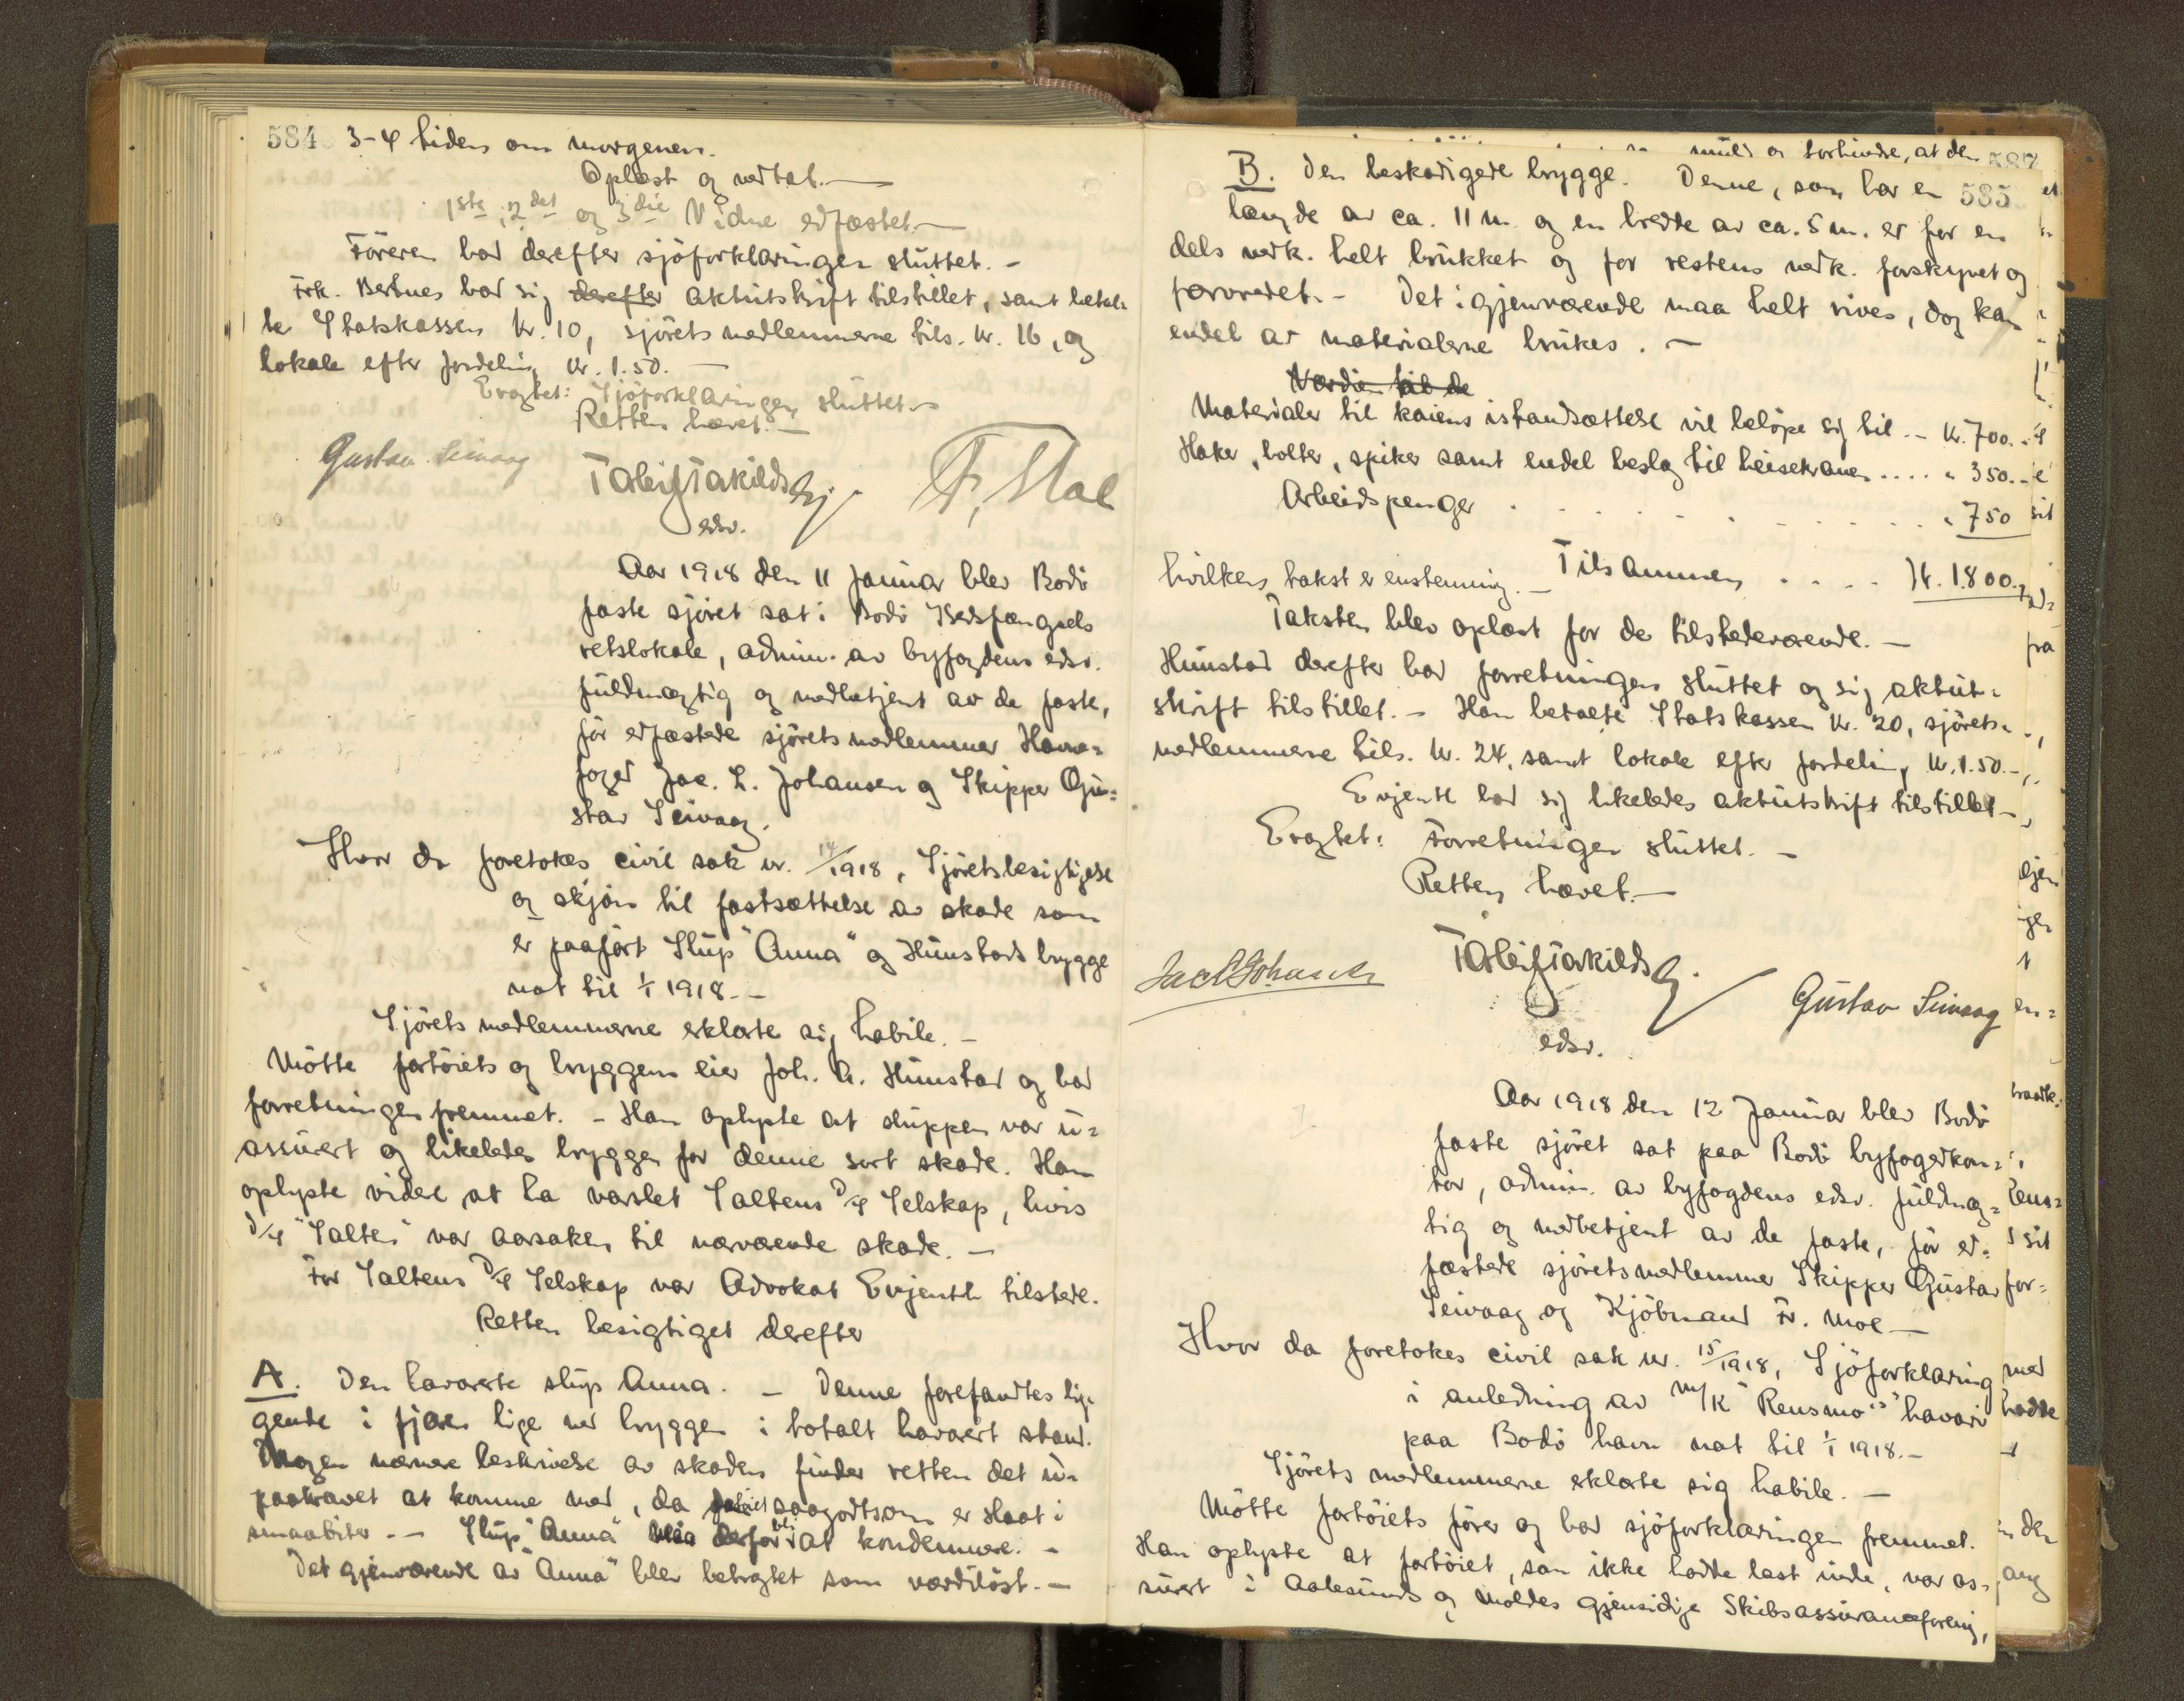 584 3-4 tiden om morgenen.
Oplæst og vedtat.—
1ste, 2det og 3die Vidne edfæstet.—
Föreren bad derefter sjöforklaringen sluttet. -
Frk. Bertnes bad sig derefter aktutskrift tilstillet, samt betal-
te Statskassen kr. 10, sjörets medlemmerne tils. kr. 16, og
lokale efter fordeling kr. 1.50. —
Eragtet: Sjöforklaringen sluttet.
Retten hævet.—
Gustav Seivaag
F. Moe
edsv.
Aar 1918 den 11 Januar blev Bodö
faste sjöret sat i Bodö Kredsfængsels
retslokale, admin. av byfogdens edsv.
fuldmægtig og medbetjent av de faste,
för edfæstede sjörets medlemmer Havne=
foged Jac. L. Johansen og Skipper Gu=
stav Seivaag.
Hvor da foretokes civil sak nr. 14/1918, Sjöretsbesigtigelse
og skjön til fastsættelse av skade som
er paafört Slup "Anna" og Hunstads brygge
nat til 1/1 1918.-
Sjörets medlemmerne erklærte sig habile. -
Mötte fartöiets og bryggens eier Joh. A. Hunstad og bad
forretningen fremmet. - Han oplyste at sluppen var u=
assurert og likeledes bryggen for denne sort skade. Han
oplyste videre at ha varslet Saltens D/S Selskap, hvis
D/S "Salten" var aarsaken til nærværende skade. -
For Saltens D/S Selskap var Advokat Evjenth tilstede.
Retten besigtiget derefter
A. Den havarerte slup Anna. - Denne forefandtes lig-
gende i fjæren lige ved bryggen i totalt havarert stand.
Nogen nærmere beskrivelse av skaden finder retten det u-
paakrævet at komme med, da fartöiet saagodtsom er slaat i
smaabiter. - Slup "Anna" blir derfor at kondemnere. -
Det gjenværende av "Anna" blev betragtet som værdilöst. -
585
B. Den beskadigede brygge. Denne, som har en
længde av ca. 11 m. og en bredde av ca. 5 m. er for en
dels vedk. helt brukket og for restens vedk. forskyvet og
forvredet. - Det igjenværende maa helt rives, dog kan
endel av materialerne brukes. -
Værdien til de
Materialer til kaiens istandsættelse vil belöpe sig til .- kr. 700.-
Haker, bolter, spiker samt endel beslag til heisekranen .... " 350.-
Arbeidspenger . . . . . . . . . . " 750
Tilsammen . . . . kr. 1800.-
hvilken takst er enstemmig. -
Taksten blev oplæst for de tilstedeværende. -
Hunstad derefter bad forretningen sluttet og sig aktut=
skrift tilstillet. - Han betalte Statskassen kr. 20, sjörets-
medlemmerne tils. kr. 24, samt lokale efter fordeling kr. 1.50.-
Evjenth bad sig likeledes aktutskrift tilstillet-
Eragtet: Forretningen sluttet. -
Retten hævet.-
Jac L Johansen
Gustav Seivaag
edsv.
Aar 1918 den 12 Januar blev Bodö
faste sjöret sat paa Bodö byfogedkon=
tor, admin. av byfogdens edsv. fuldmæg=
tig og medbetjent av de faste, för ed=
fæstede sjöretsmedlemmer Skipper Gustav
Seivaag og Kjöbmand Fr. Moe —
Hvor da foretokes civil sak nr. 15/1918, Sjöforklaring
i anledning av M/K "Rensmo"s havari
paa Bodö havn nat til 1/1 1918.-
Sjörets medlemmerne erklærte sig habile. -
Mötte fartöiets förer og bad sjöforklaringen fremmet.
Han oplyste at fartöiet, som ikke hadde last inde, var as-
surert i Aalesunds og Moldes gjensidige Skibsassuranceforening,